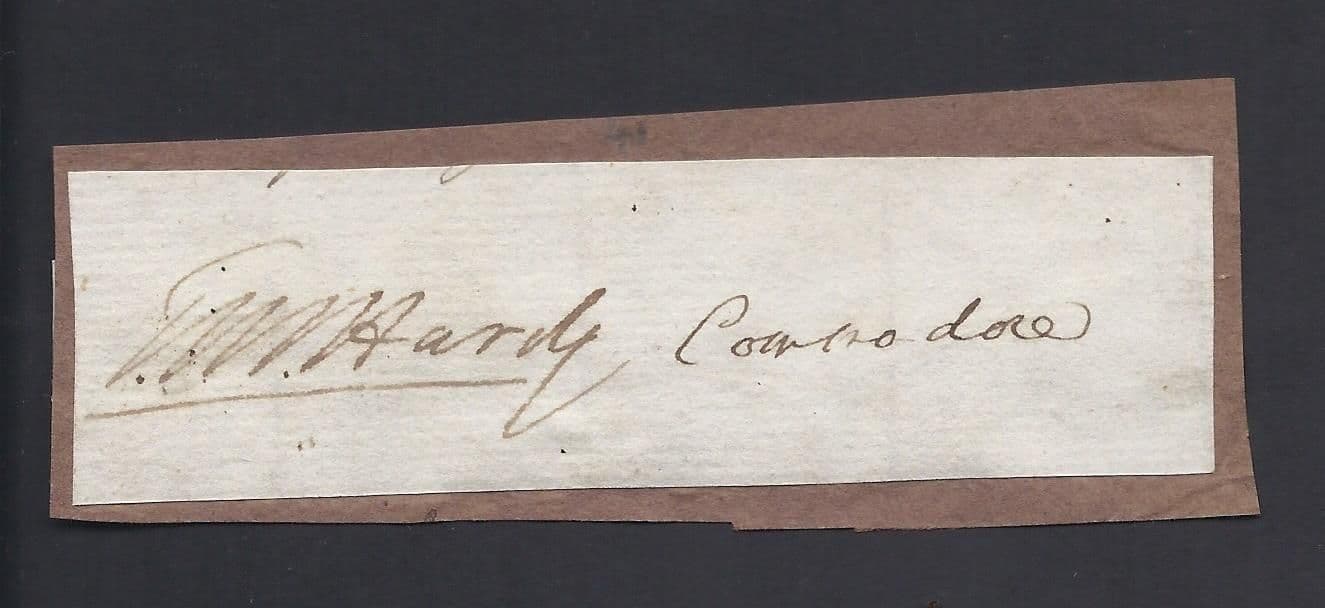 T. M. Hardy Commodore